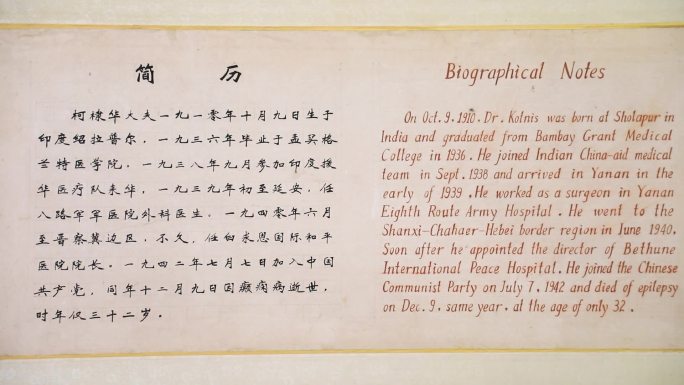 简 历
柯棣华大夫一九一零年十月九日生于
印度绍拉普尔，一九三六年毕业于孟买格
兰特医学院，一九三八年九月参加印度援
华医疗队来华，一九三九年初至延安，任
八路军军医院外科医生，一九四零年六月
至晋察冀边区，不久，任白求恩国际和平
医院院长。一九四二年七月七日加入中国
共产党，同年十二月九日因癫痫病逝世，
时年仅三十二岁。
Biographical Notes
On Oct. 9, 1910, Dr. Kotnis was born at Sholapur in
India and graduated from Bambay Grant Medical
College in 1936. He joined Indian China-aid medical
team in Sept. 1938 and arrived in Yanan in the
early of 1939. He worked as a surgeon in Yanan
Eighth Route Army Hospital. He went to the
Shanxi-Chahaer-Hebei border region in June 1940.
Soon after he appointed the director of Bethune
International Peace Hospital. He joined the Chinese
Communist Party on July 7, 1942 and died of epilepsy
on Dec. 9, same year, at the age of only 32.